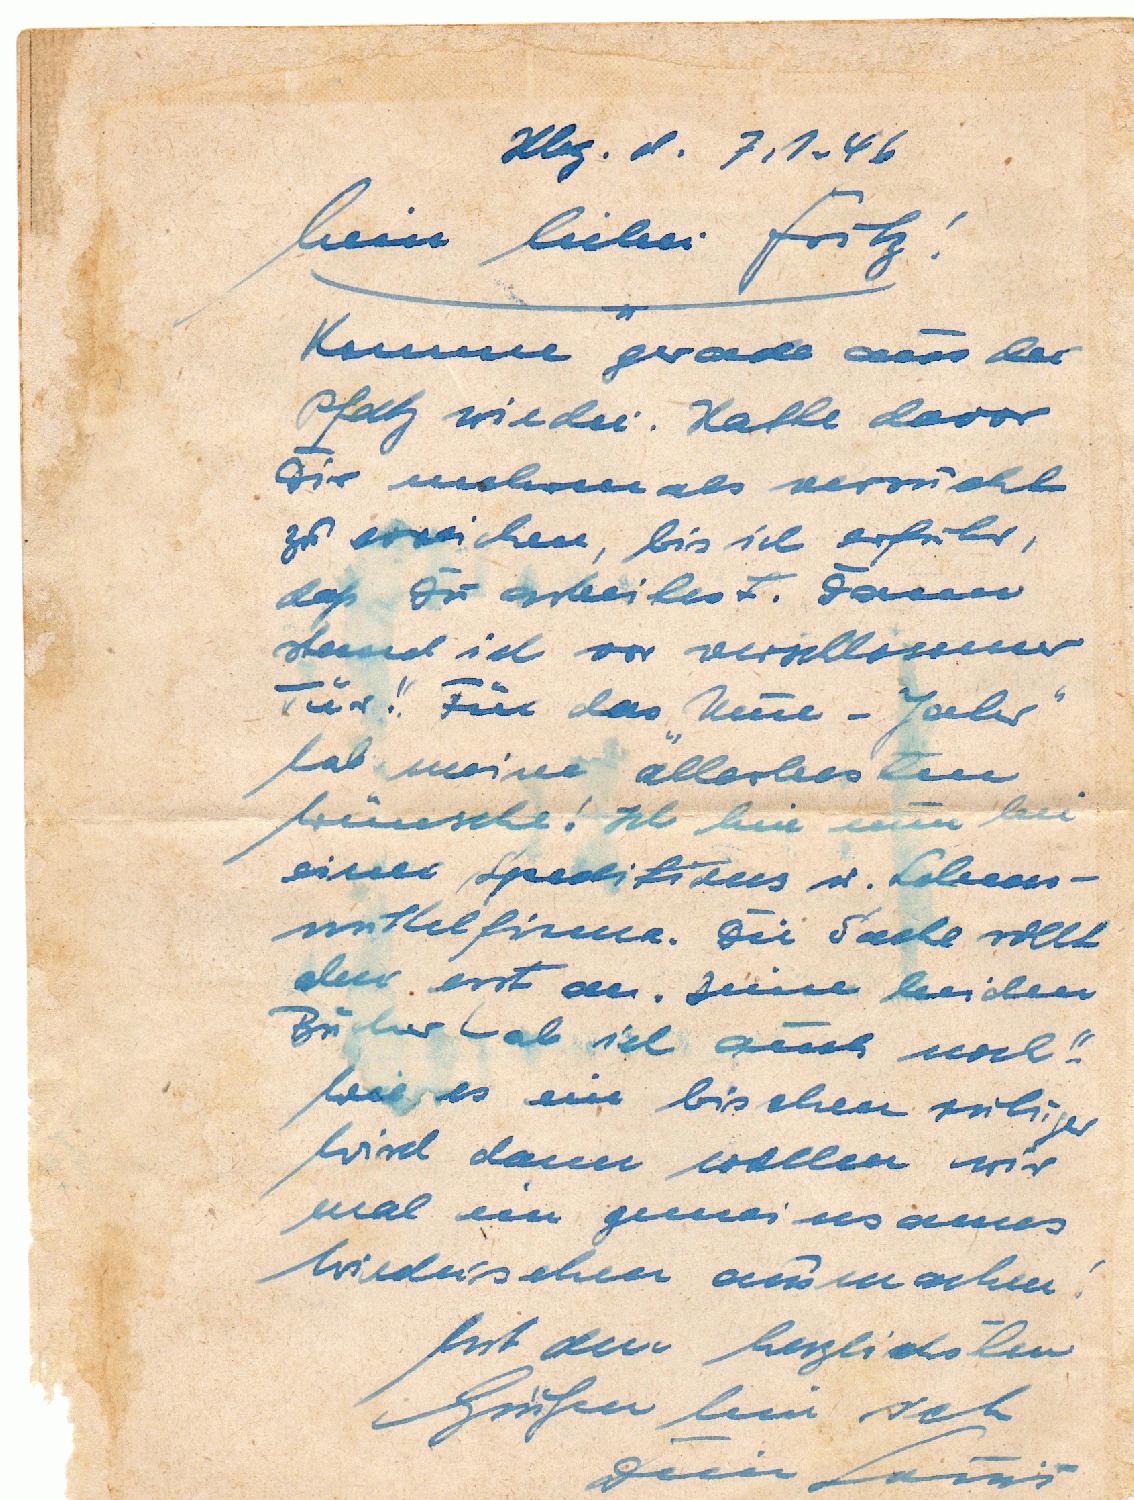 Hbg. d. 7.1.46
Mein lieber Fritz!
Komme gerade aus der
Pfalz wieder. Hatte davor
Dir mehrmals versucht
zu erreichen, bis ich erfuhr,
daß Du arbeitest. Dann
stand ich vor verschlossener
Tür!! Für das "Neue-Jahr"
hab meine allerbesten
Wünsche! Ich bin nun bei
einer Speditions u. Lebens-
mittelfirma. Die Sache rollt
aber erst an. Deine beiden
Bücher hab ich auch noch!!
Wie es ein bischen ruhiger
wird dann wollen wir
mal ein gemeinsames
Wiedersehen ausmachen!
Mit den herzlichsten
Grüßen bin ich
Dein Louis